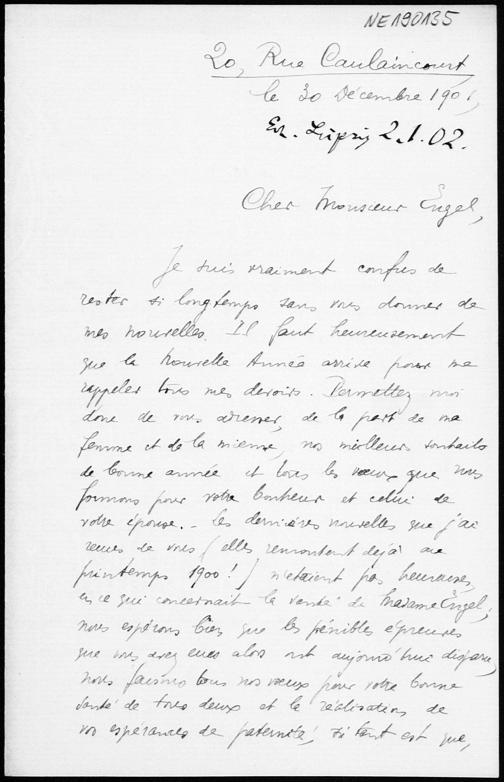 NE190135
20, Rue Caulaincourt
le 30 Décembre 1901,
2.1.02.
Cher Monsieur Engel,
Je suis vraiment confus de
rester si longtemps sans vous donner de
mes nouvelles. Il faut heureusement
que la Nouvelle Année arrive pour me
rappeler tous mes devoirs. Permettez moi
donc de vous adresser, de la part de ma
femme et de la mienne, nos meilleurs souhaits
de bonne année et tous les vœux que nous
formons pour votre bonheur et celui de
votre épouse. - Les dernières nouvelles que j'ai
reçues de vous (elles remontent déjà au
printemps 1900!) n'étaient pas heureuses,
en ce qui concernait la santé de Madame Engel;
nous espérons bien que les pénibles épreuves
que vous avez eues alors ont aujourd'hui disparu,
nous faisons tous nos vœux pour votre bonne
santé de tous deux et la réalisation de
vos espérances de paternité, si tant est que,